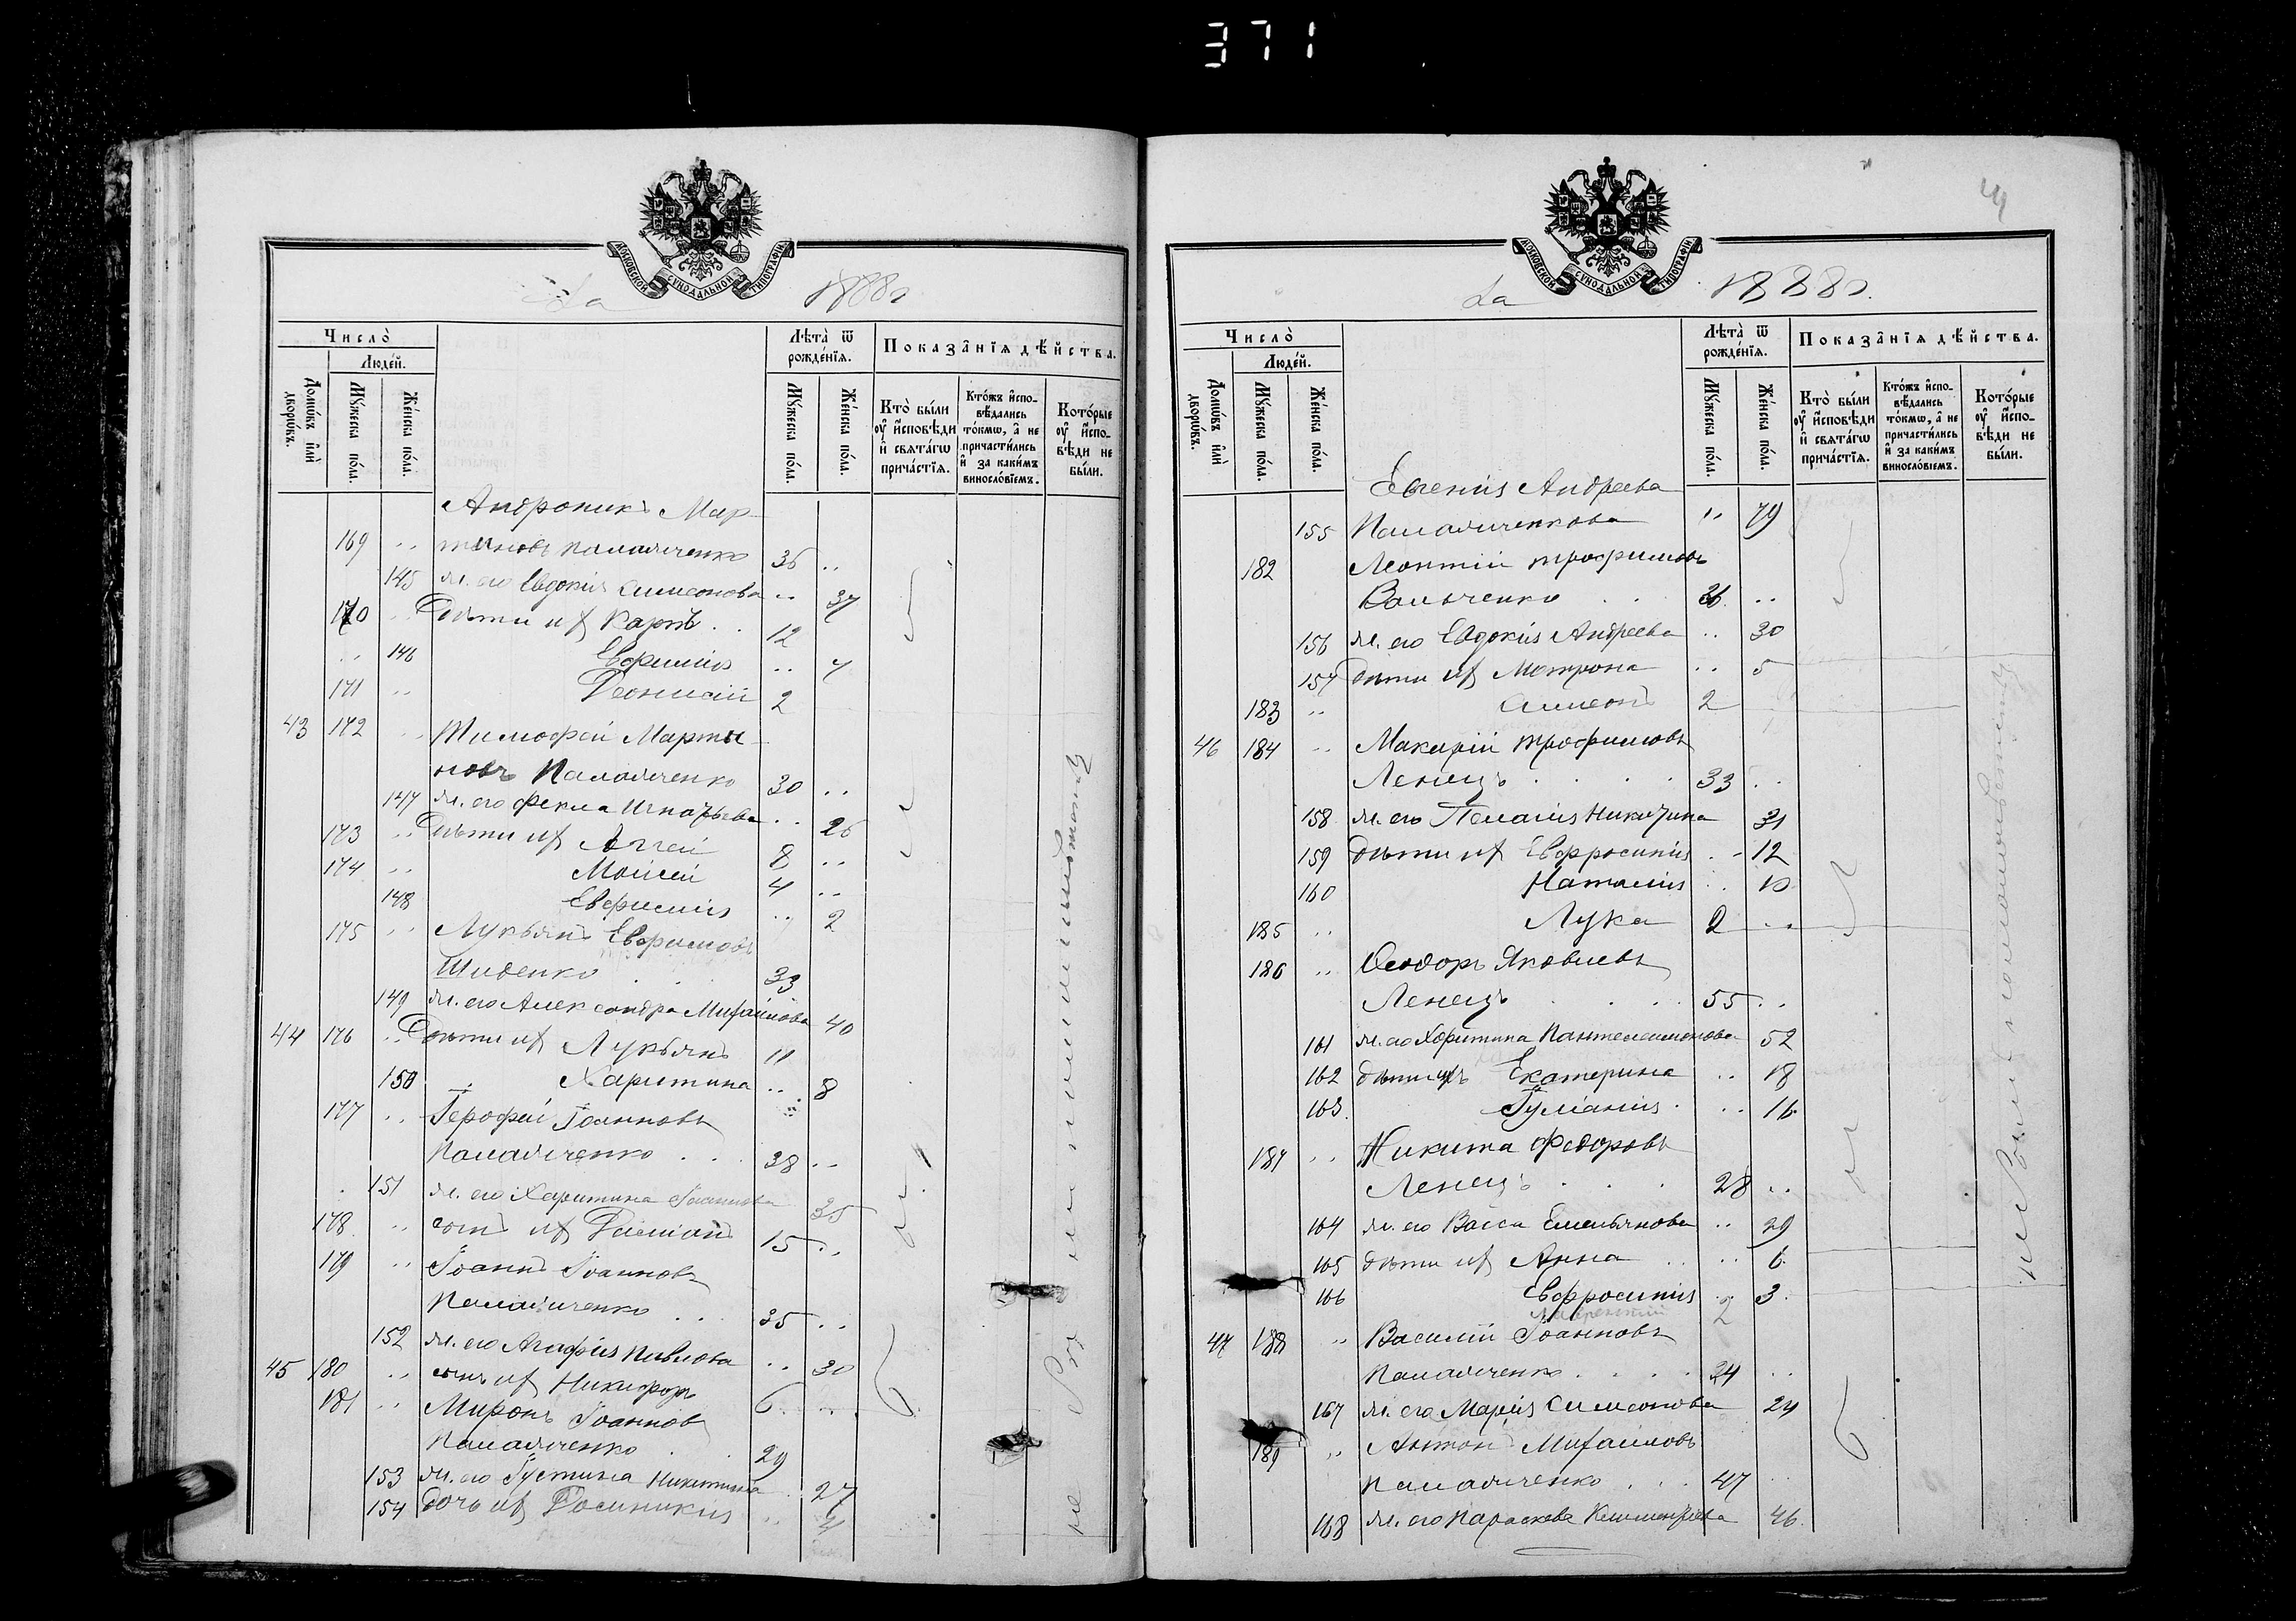 371
МОСКОВСКОЙ СУНОДАЛЬНОЙ ТИПОГРАФІИ
За 1888 г
Число̀
Люде́й.
Домѡ́въ и҆лѝ дворѡ́въ.
Мꙋ́жеска по́ла.
Же́нска по́ла.
Лѣта̀ ѿ рожде́нїѧ.
Мꙋ́жеска по́ла.
Же́нска по́ла.
Показа̑нїѧ дѣ́йства.
Кто̀ бы́ли ᲂу҆ и҆сповѣ́ди и҆ свѧта́гѡ прича́стїѧ.
Кто́жъ и҆спо- вѣ́дались то́кмѡ, а҆ не причасти́лись и҆ за каки́мъ винослові́емъ.
Кото́рые ᲂу҆ и҆спо- вѣ́ди не бы́ли.
Андроникъ Мар-
169 .. тыновъ Паламаченко 36 ..
145 ж. его Евдокія Симеонова .. 37
170 .. Дѣти их Карпъ . . 12
.. 146 Евфимія .. 7
171 .. Деонисій 2
43 172 .. Тимофей Марты-
новъ Паламаченко 30 ..
147 ж. его Фекла Игнатьева .. 26
173 .. Дѣти их Аггей 8 ..
174 .. Моисей 4 ..
148 Евфимія .. 2
175 .. Лукьянъ Евфимовъ
Шиденко 33
149 ж. его Александра Михайлова 40
44 176 .. Дѣти их Лукьянъ 11
150 Харитина .. 8
177 .. Іерофей Іоанновъ
Паламаченко . . 38 ..
151 ж. его Харитина Іоаннова 35
178 .. сынъ их Даміанъ 15 ..
179 .. Іоаннъ Іоанновъ
Паламаченко . . . 35 ..
152 ж. его Агафія Павлова .. 30
45 180 .. сынъ их Никифоръ 6 ..
181 .. Миронъ Іоаннов
Паламаченко . . 29
153 ж. его Іустина Никитина . 27
154 дочь их Домникія ..
МОСКОВСКОЙ СУНОДАЛЬНОЙ ТИПОГРАФІИ
За 1888 г.
Число̀
Люде́й.
Домѡ́въ и҆лѝ дворѡ́въ.
Мꙋ́жеска по́ла.
Же́нска по́ла.
Лѣта̀ ѿ рожде́нїѧ.
Мꙋ́жеска по́ла.
Же́нска по́ла.
Показа̑нїѧ дѣ́йства.
Кто̀ бы́ли ᲂу҆ и҆сповѣ́ди и҆ свѧта́гѡ прича́стїѧ.
Кто́жъ и҆спо- вѣ́дались то́кмѡ, а҆ не причасти́лись и҆ за каки́мъ винослові́емъ.
Кото́рые ᲂу҆ и҆спо- вѣ́ди не бы́ли.
Евгенія Андреева
155 Паламаченкова .. 79
182 Леонтій Трофимовъ
Вальченко . . 36 ..
156 ж. его Евдокія Андреева .. 30
157 дѣти их Мотрона .. 5
183 .. Симеонъ 2
46 184 .. Макарій Трофимовъ
Ленецъ . . . . 33 ..
158 ж. его Пелагія Никитина 31
159 дѣти их Евфросинія .. 12
160 Наталія .. 10
185 .. Лука 2 ..
186 .. Ѳеодоръ Яковлевъ
Ленецъ . . . 55 ..
161 ж. его Харитина Пантелеимонова 52
162 дѣти ихъ Екатерина .. 18
163. Іуліанія . .. 16
187 .. Никита Федоровъ
Ленецъ . . . 28 ..
164 ж. его Васса Емельянова .. 29
165 дѣти их Анна . . .. 6
166 Евфросинія .. 3.
2
47 188 .. Василій Іоанновъ
Паламаченко . . . . 24 ..
167 ж. его Марія Симеонова 24
189 .. Антонъ Михаиловъ
Паламаченко . . . 47 ..
168 ж. его Параскева Климентіева 46.